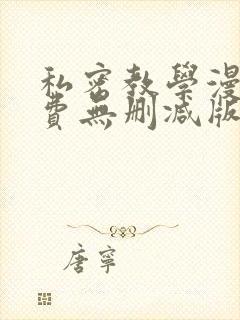 私密教學漫
費無刪減版
唐寧